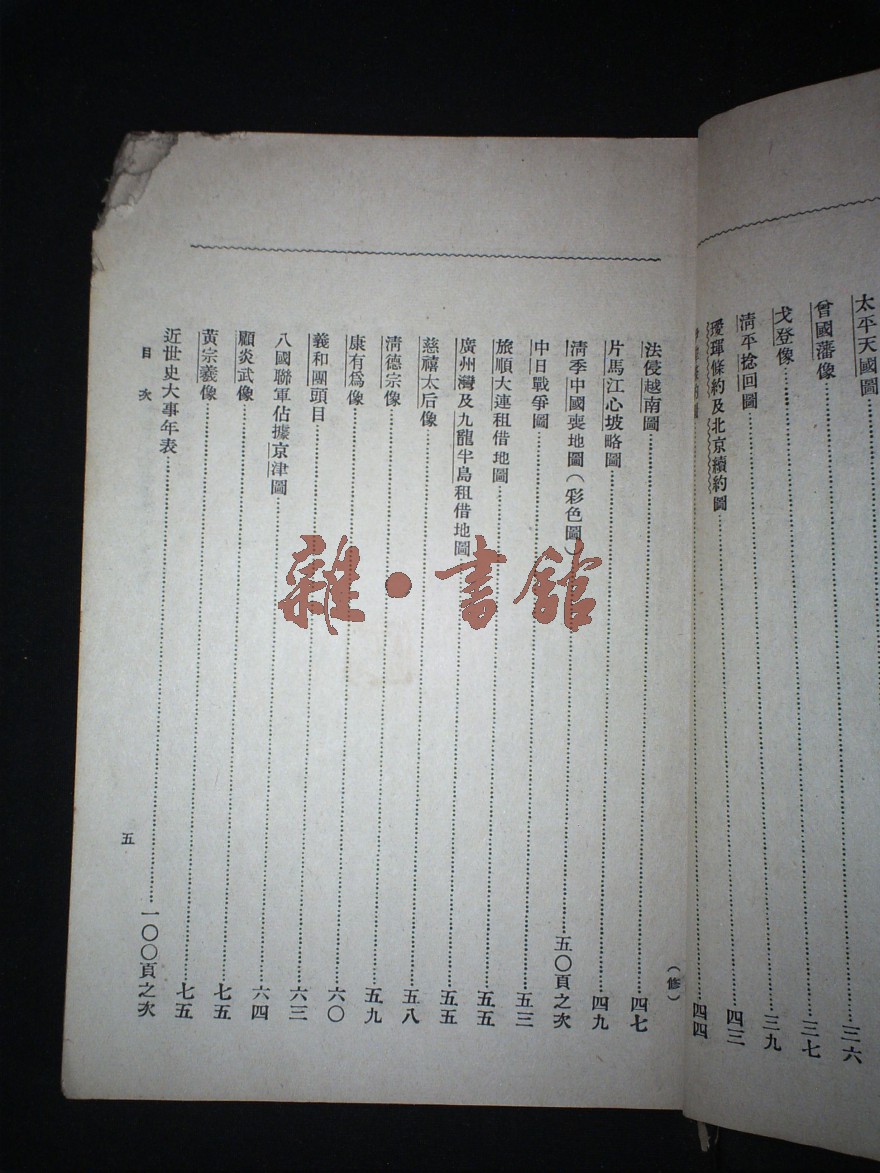 太平天國圖……三六
曾國藩像……三七
戈登像……三九
清平捻回圖……四三
璦琿條約及北京續約圖……四四
(修)
法侵越南圖……四七
片馬江心坡略圖……四九
清季中國喪地圖(彩色圖)……五〇頁之次
中日戰爭圖……五三
旅順大連租借地圖……五五
廣州灣及九龍半島租借地圖……五五
慈禧太后像……五八
清德宗像……五九
康有爲像……六〇
義和團頭目……六三
八國聯軍佔據京津圖……六四
顧炎武像……七五
黃宗羲像……七五
近世史大事年表……一〇〇頁之次
目次
五
雜·書館